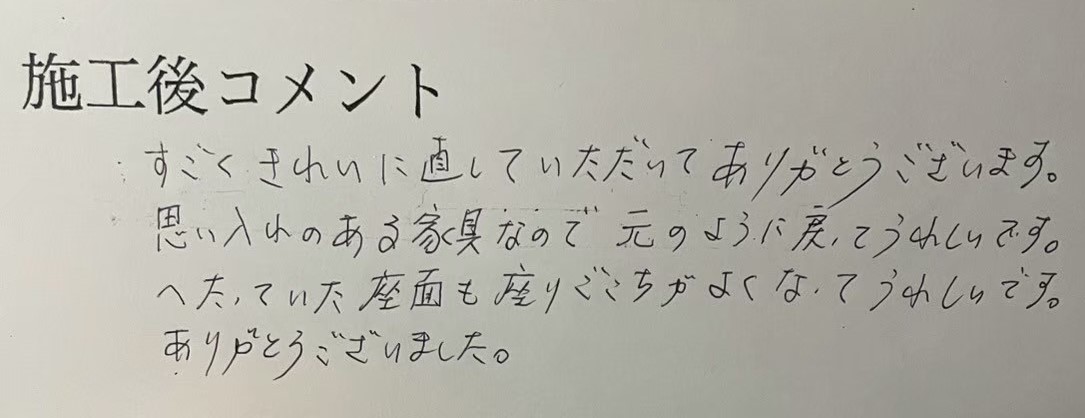 施工後コメント
すごくきれいに直していただいてありがとうございます。
思い入れのある家具なので元のように戻ってうれしいです。
へたっていた座面も座りごこちがよくなってうれしいです。
ありがとうございました。